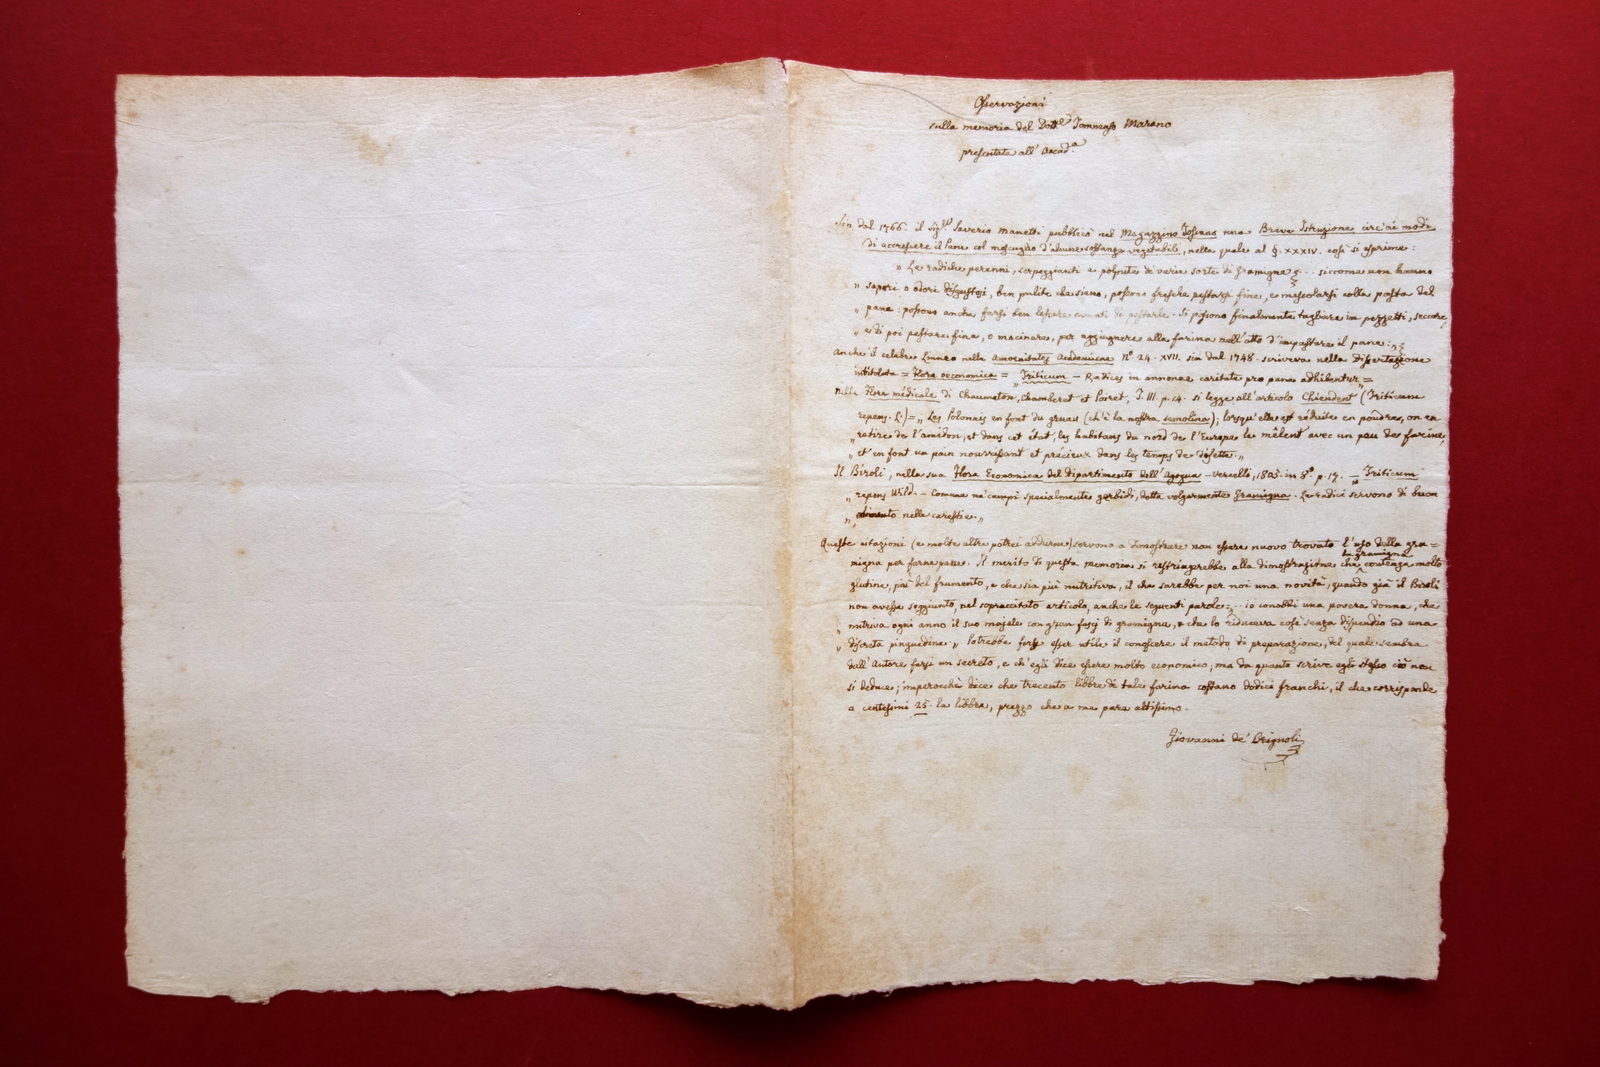 Osservazioni
sulla memoria del Dott.e Tommaso Marano
presentata all' Accad.a
Sin dal 1766. il Sig.r Saverio Manetti pubblicò nel Magazzino Toscano una Breve Istruzione circ'ai modi
di accrescere il Pane col mescuglio d'alcune sostanze vegetabili, nella quale al §. XXXIV. così si esprime:
" Le radiche perenni, serpeggianti e polpute di varie sorte di Gramigna ... siccome non hanno
" sapori o odori disgustosi, ben pulite che siano, possono fresche pestarsi fine, e mescolarsi colla pasta del
" pane: possono anche farsi ben lessare avanti di pestarle. Si possono finalmente tagliare in pezzetti, seccare,
" e di poi pestare fine, o macinare, per aggiugnere alla farina nell'atto d'impastare il pane:"
Anche il celebre Linneo nelle Amoenitates Academicae N.o 24. XVII. sin dal 1748. scriveva nella dissertazione
intitolata = Flora oeconomica = "Triticum — Radices in annonae caritate pro pane adhibentur" =
Nella Flora médicale di Chaumeton, Chamberet et Poiret, T. III. p. 14. si legge all'articolo Chiendent (Triticum
repens. L.) = " Les Polonais en font du gruau (ch'è la nostra semolina); lorsqu'elle est réduite en poudre, on en
" retire de l'amidon, et dans cet état, les habitans du nord de l'Europe la mêlent avec un peu de farine,
" et en font un pain nourrissant et précieux dans les temps de disette."
Il Biroli, nella sua Flora Economica del dipartimento dell'Agogna — Vercelli, 1805. in 8.o p. 17. — "Triticum
" repens Wild. — Comune ne' campi specialmente gerbidi, detta volgarmente Gramigna. Le radici servono di buon
" alimento nelle carestie."
Queste citazioni (e molte altre potrei addurne) servono a dimostrare non essere nuovo trovato l'uso della gra=
migna per farne pane. Il merito di questa memoria si restringerebbe alla dimostrazione che la gramigna contenga molto
glutine, più del frumento, e che sia più nutritiva, il che sarebbe per noi una novità, quando già il Biroli
non avesse soggiunto, nel sopraccitato articolo, anche le seguenti parole: "... io conobbi una povera donna, che
" nutriva ogni anno il suo majale con gran fasci di gramigna, e che lo riduceva così senza dispendio ad una
" discreta pinguedine." Potrebbe forse esser utile il conoscere il metodo di preparazione, del quale sembra
dall'Autore farsi un secreto, e ch'egli dice essere molto economico; ma da quanto scrive egli stesso ciò non
si deduce; imperocchè dice che trecento libbre di tale farina costano dodici franchi, il che corrisponde
a centesimi 25. la libbra, prezzo che a me pare altissimo.
Giovanni de' Brignoli